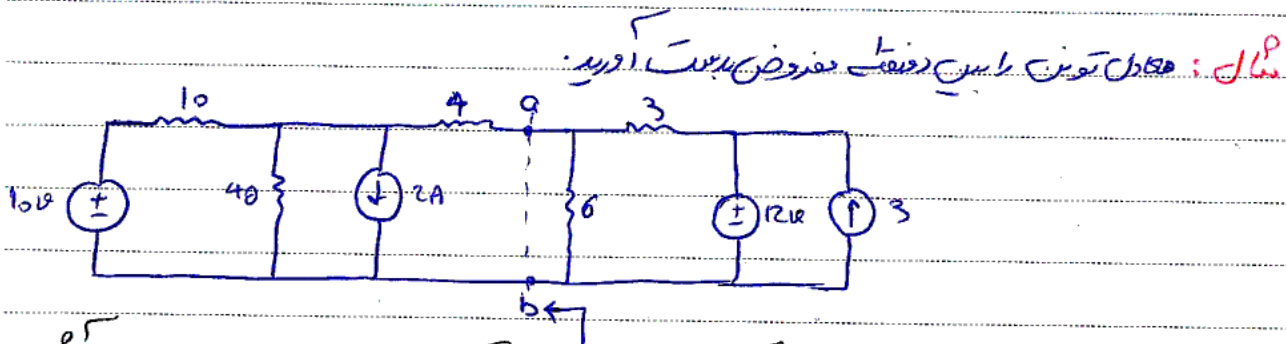 مثال : معادل تونن را بین دو نقطه مفروض بدست آورید.
10 4 a 3
10v 40 2A 6 12v 3
b